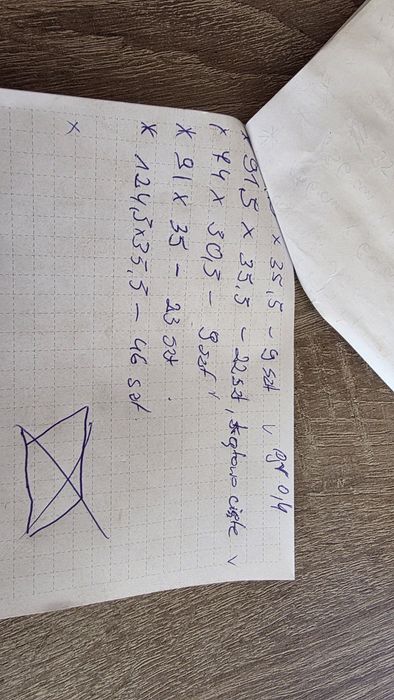 × 35,5 – 9 szt v
× 91,5 × 35,5 – 22 szt, kątowo cięte v
× 74 × 30,5 – 9 szt v
× 91 × 35 – 23 szt.
× 124,5×35,5 – 46 szt.
×